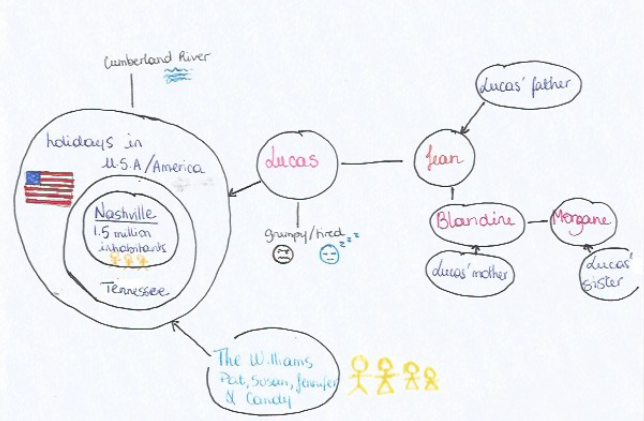 Cumberland River
holidays in
U.S.A/America
Nashville
1.5 million
inhabitants
Tennessee
Lucas
grumpy/tired
zzz
Jean
Lucas' father
Blandine
Morgane
Lucas' mother
Lucas'
sister
The Williams
Pat, Susan, Jennifer
& Candy